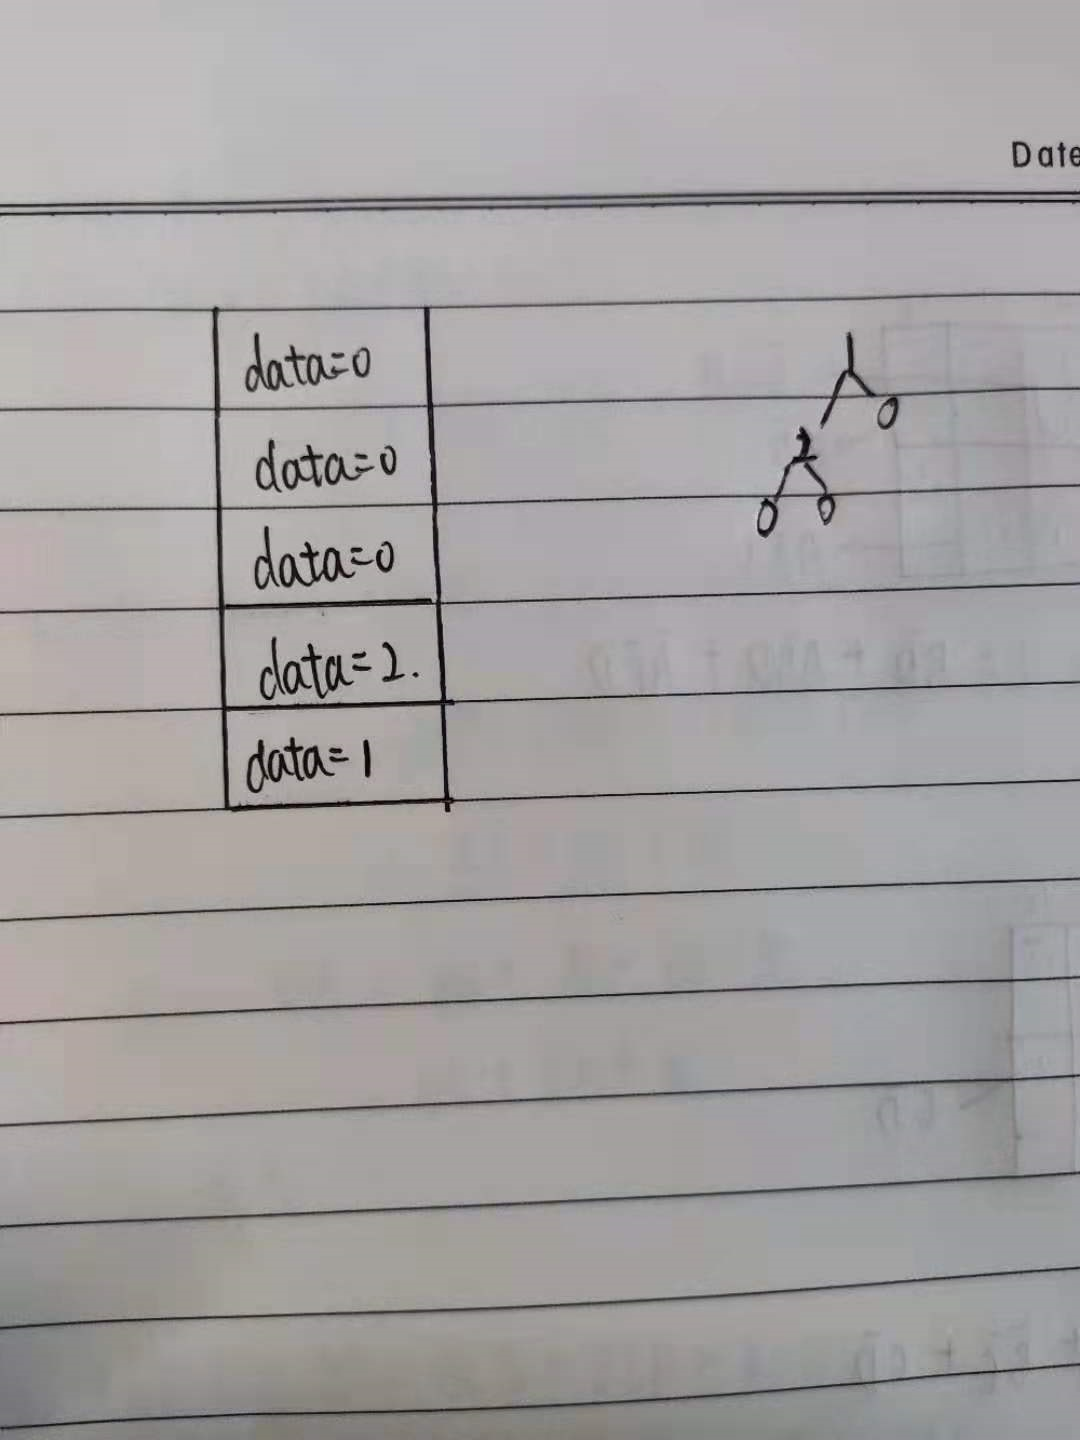 Date
data=0
data=0
data=0
data=2.
data=1
1
0
2
0 0